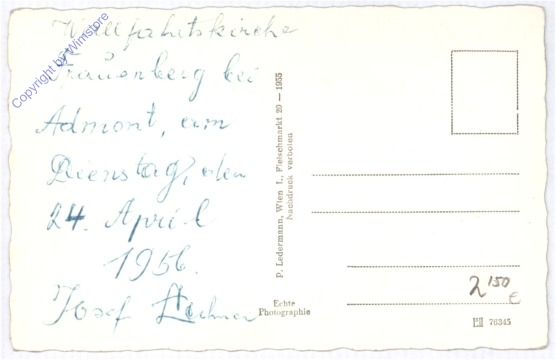 Wallfahrtskirche
Frauenberg bei
Admont, am
Dienstag, den
24. April
1956.
Josef Lechner
Copyright by Wimstore
P. Ledermann, Wien I., Fleischmarkt 20 — 1955
Nachdruck verboten
Echte
Photographie
2,50 €
76345